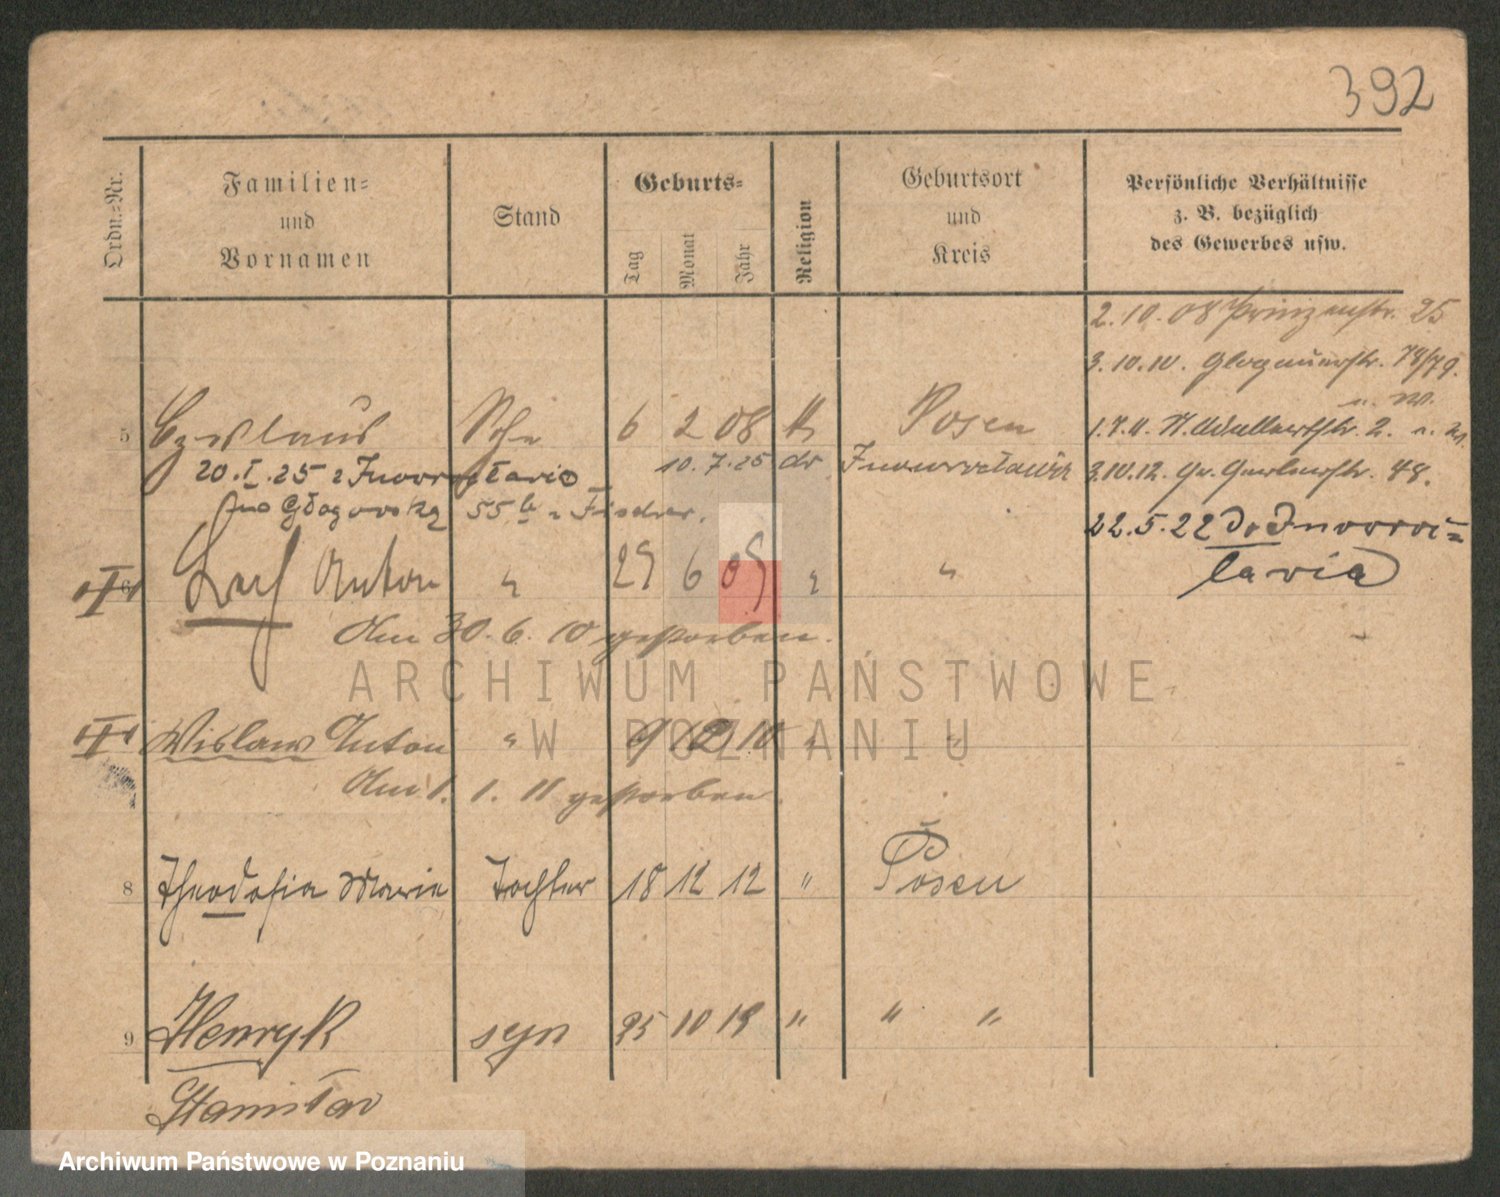 392
Ordn.-Nr.
Familien-
und
Vornamen
Stand
Geburts-
Tag
Monat
Jahr
Religion
Geburtsort
und
Kreis
Persönliche Verhältnisse
z. B. bezüglich
des Gewerbes usw.
2.10.08 Prinzenstr. 25
3.10.10. Glogauerstr. 78/79.
5 Czeslaus Sohn 6 2 08 K Posen
1.7.11.
20.I.25 z Inowrocławia 10.7.25 do Inowrocławia
3.10.12. Gr. Gerberstr. 48.
Głogowska 55 b Fischer.
22.5.22 do Inowroc=
ławia
6 Anton " 29 6 09 " "
Am 30.6.10 gestorben.
ARCHIWUM PAŃSTWOWE
W POZNANIU
Wislaw Anton " 9 12 10 " "
Am 1. 1. 11 gestorben.
8 Theodosia Marie Tochter 18 12 12 " Posen
9 Henryk syn 25 10 19 " " "
Stanisław
Archiwum Państwowe w Poznaniu